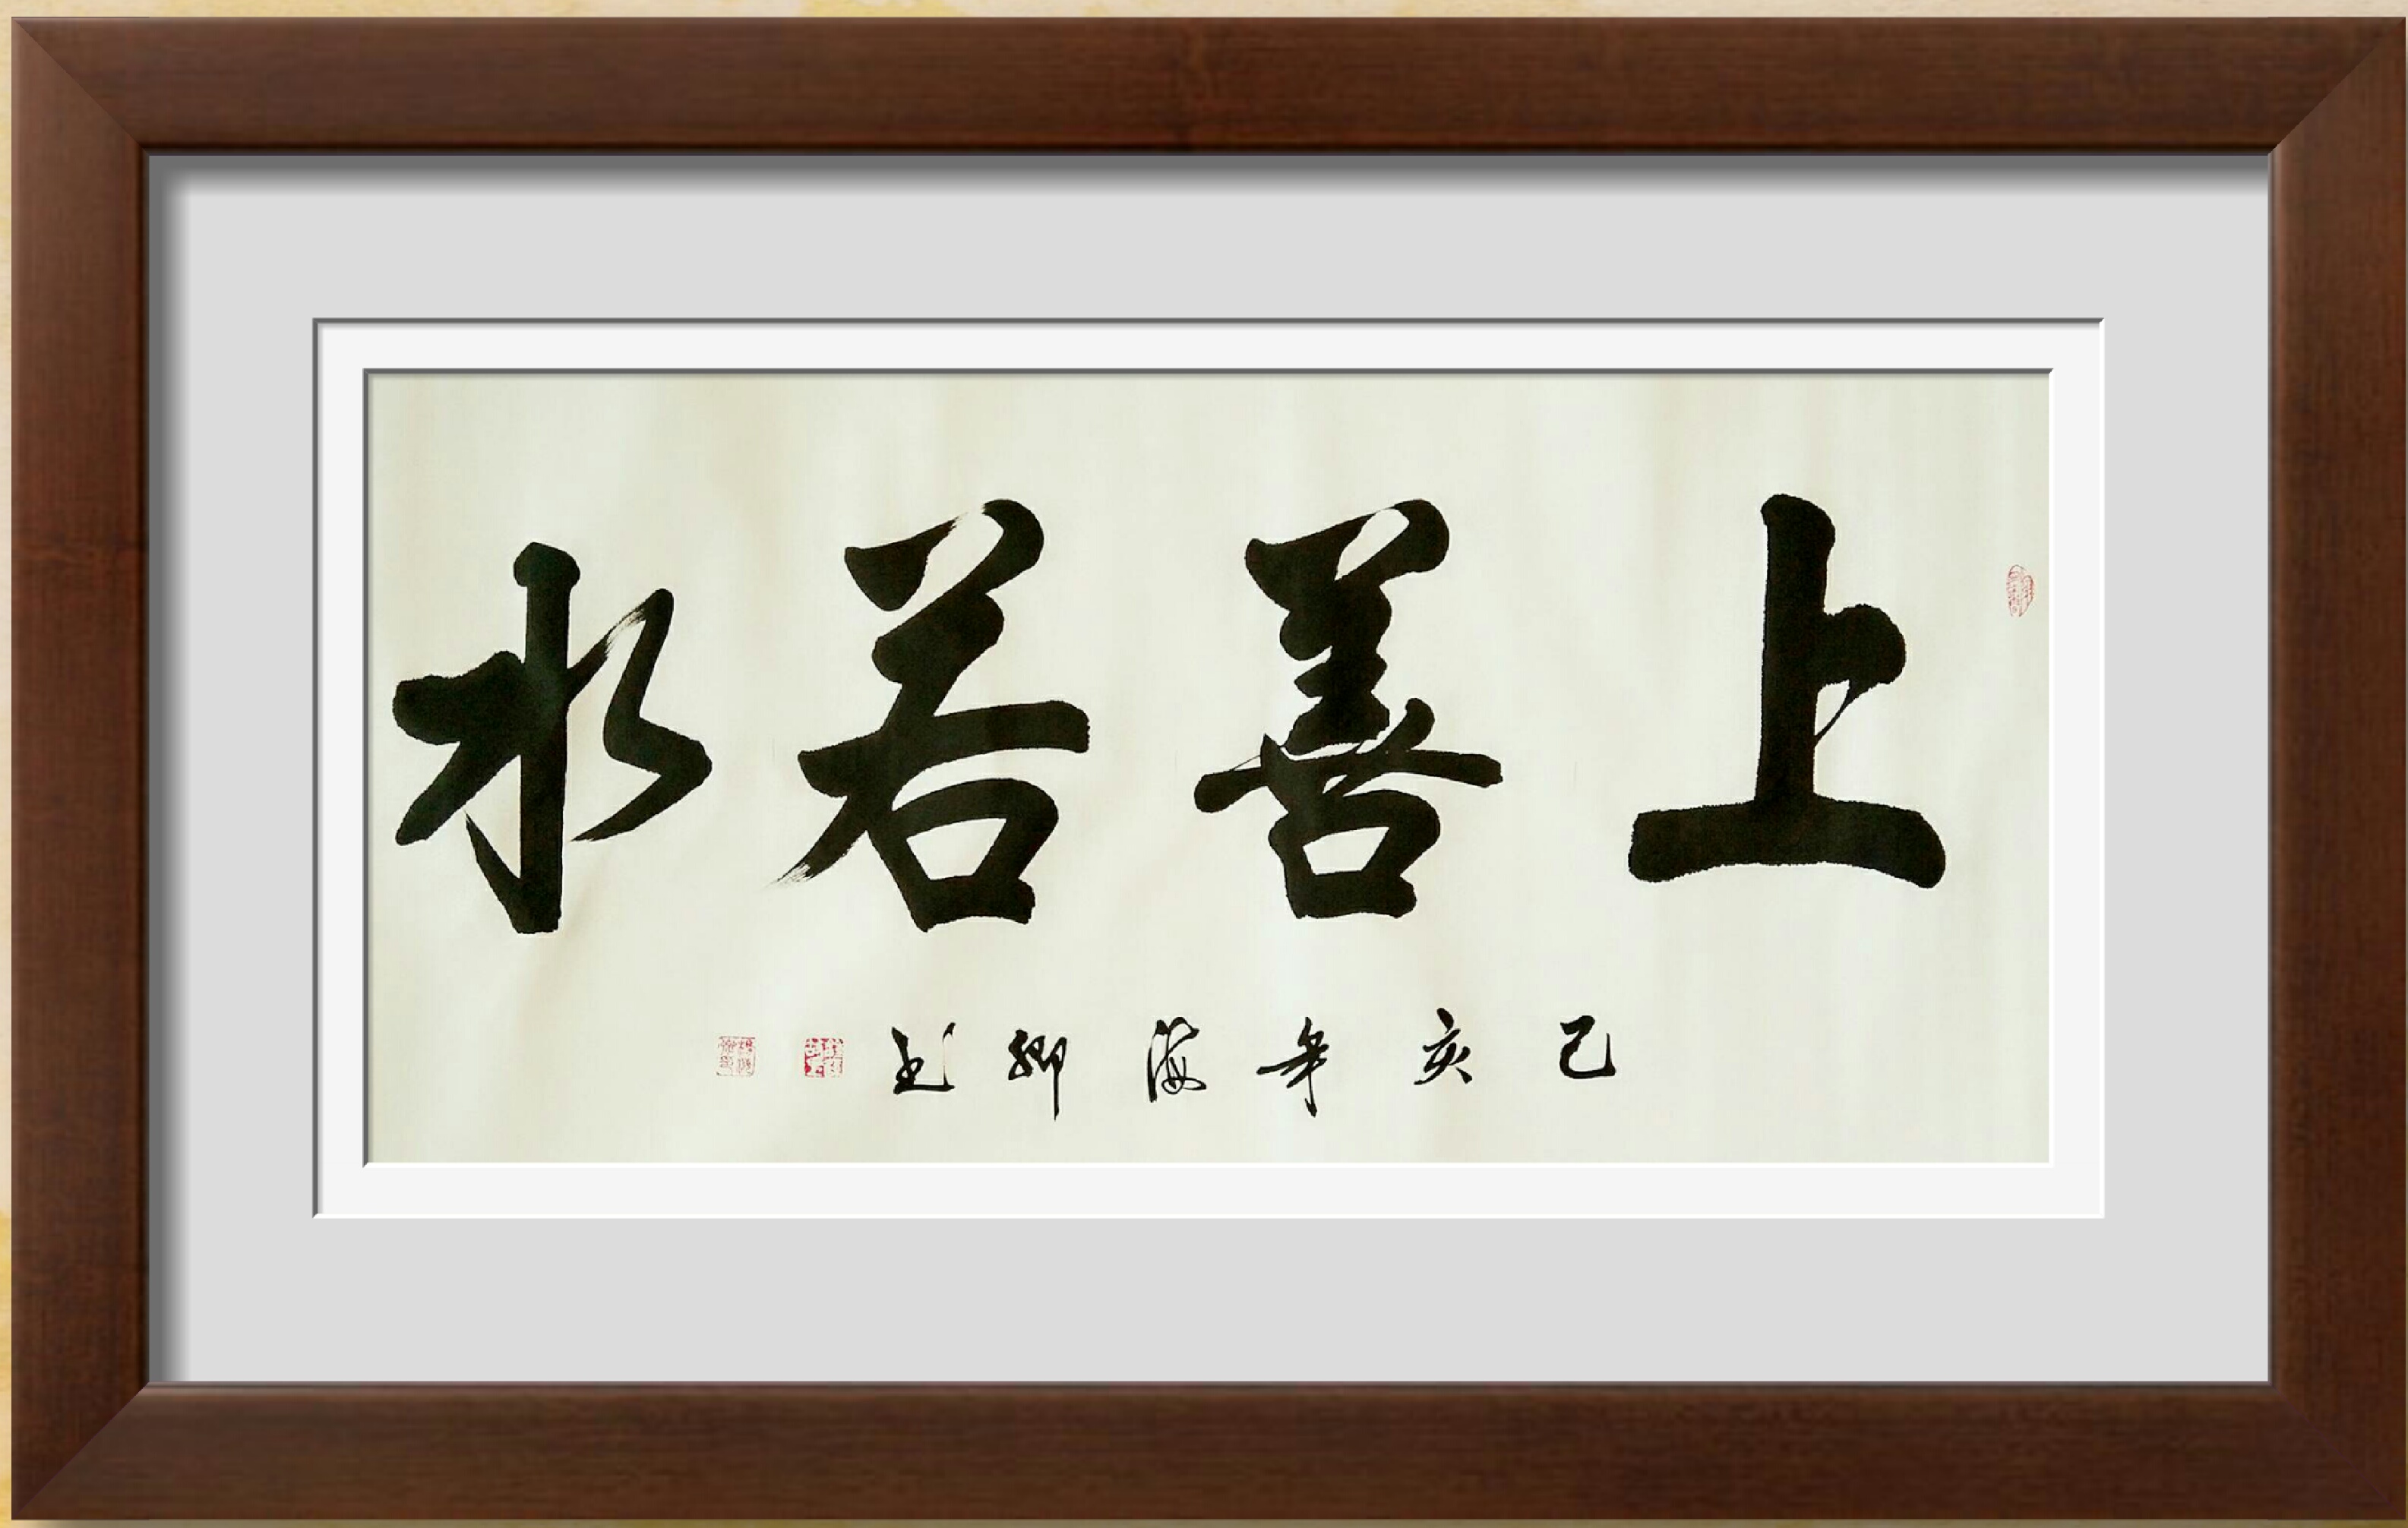 上善若水
己亥年海卿书